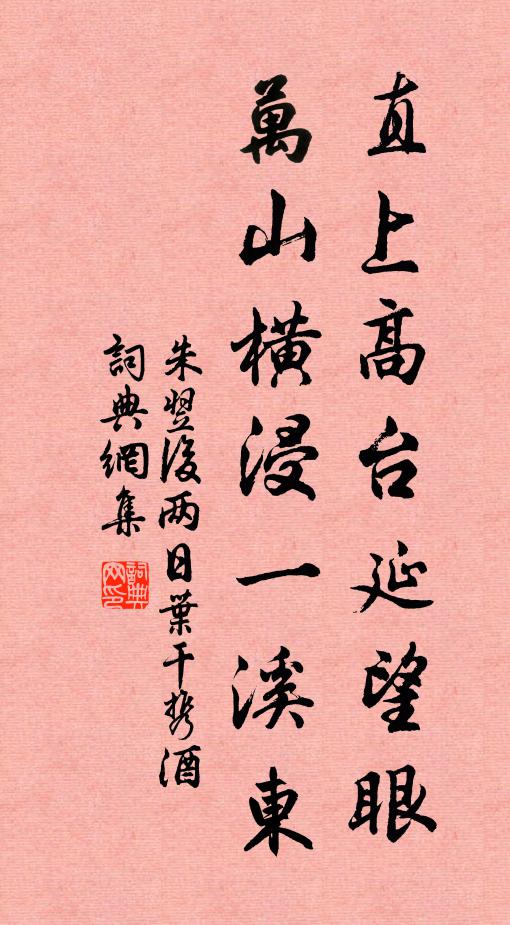 直上高台延望眼
萬山橫浸一溪東
朱翌後两日葉干携酒
詞典網集
詞典
网印